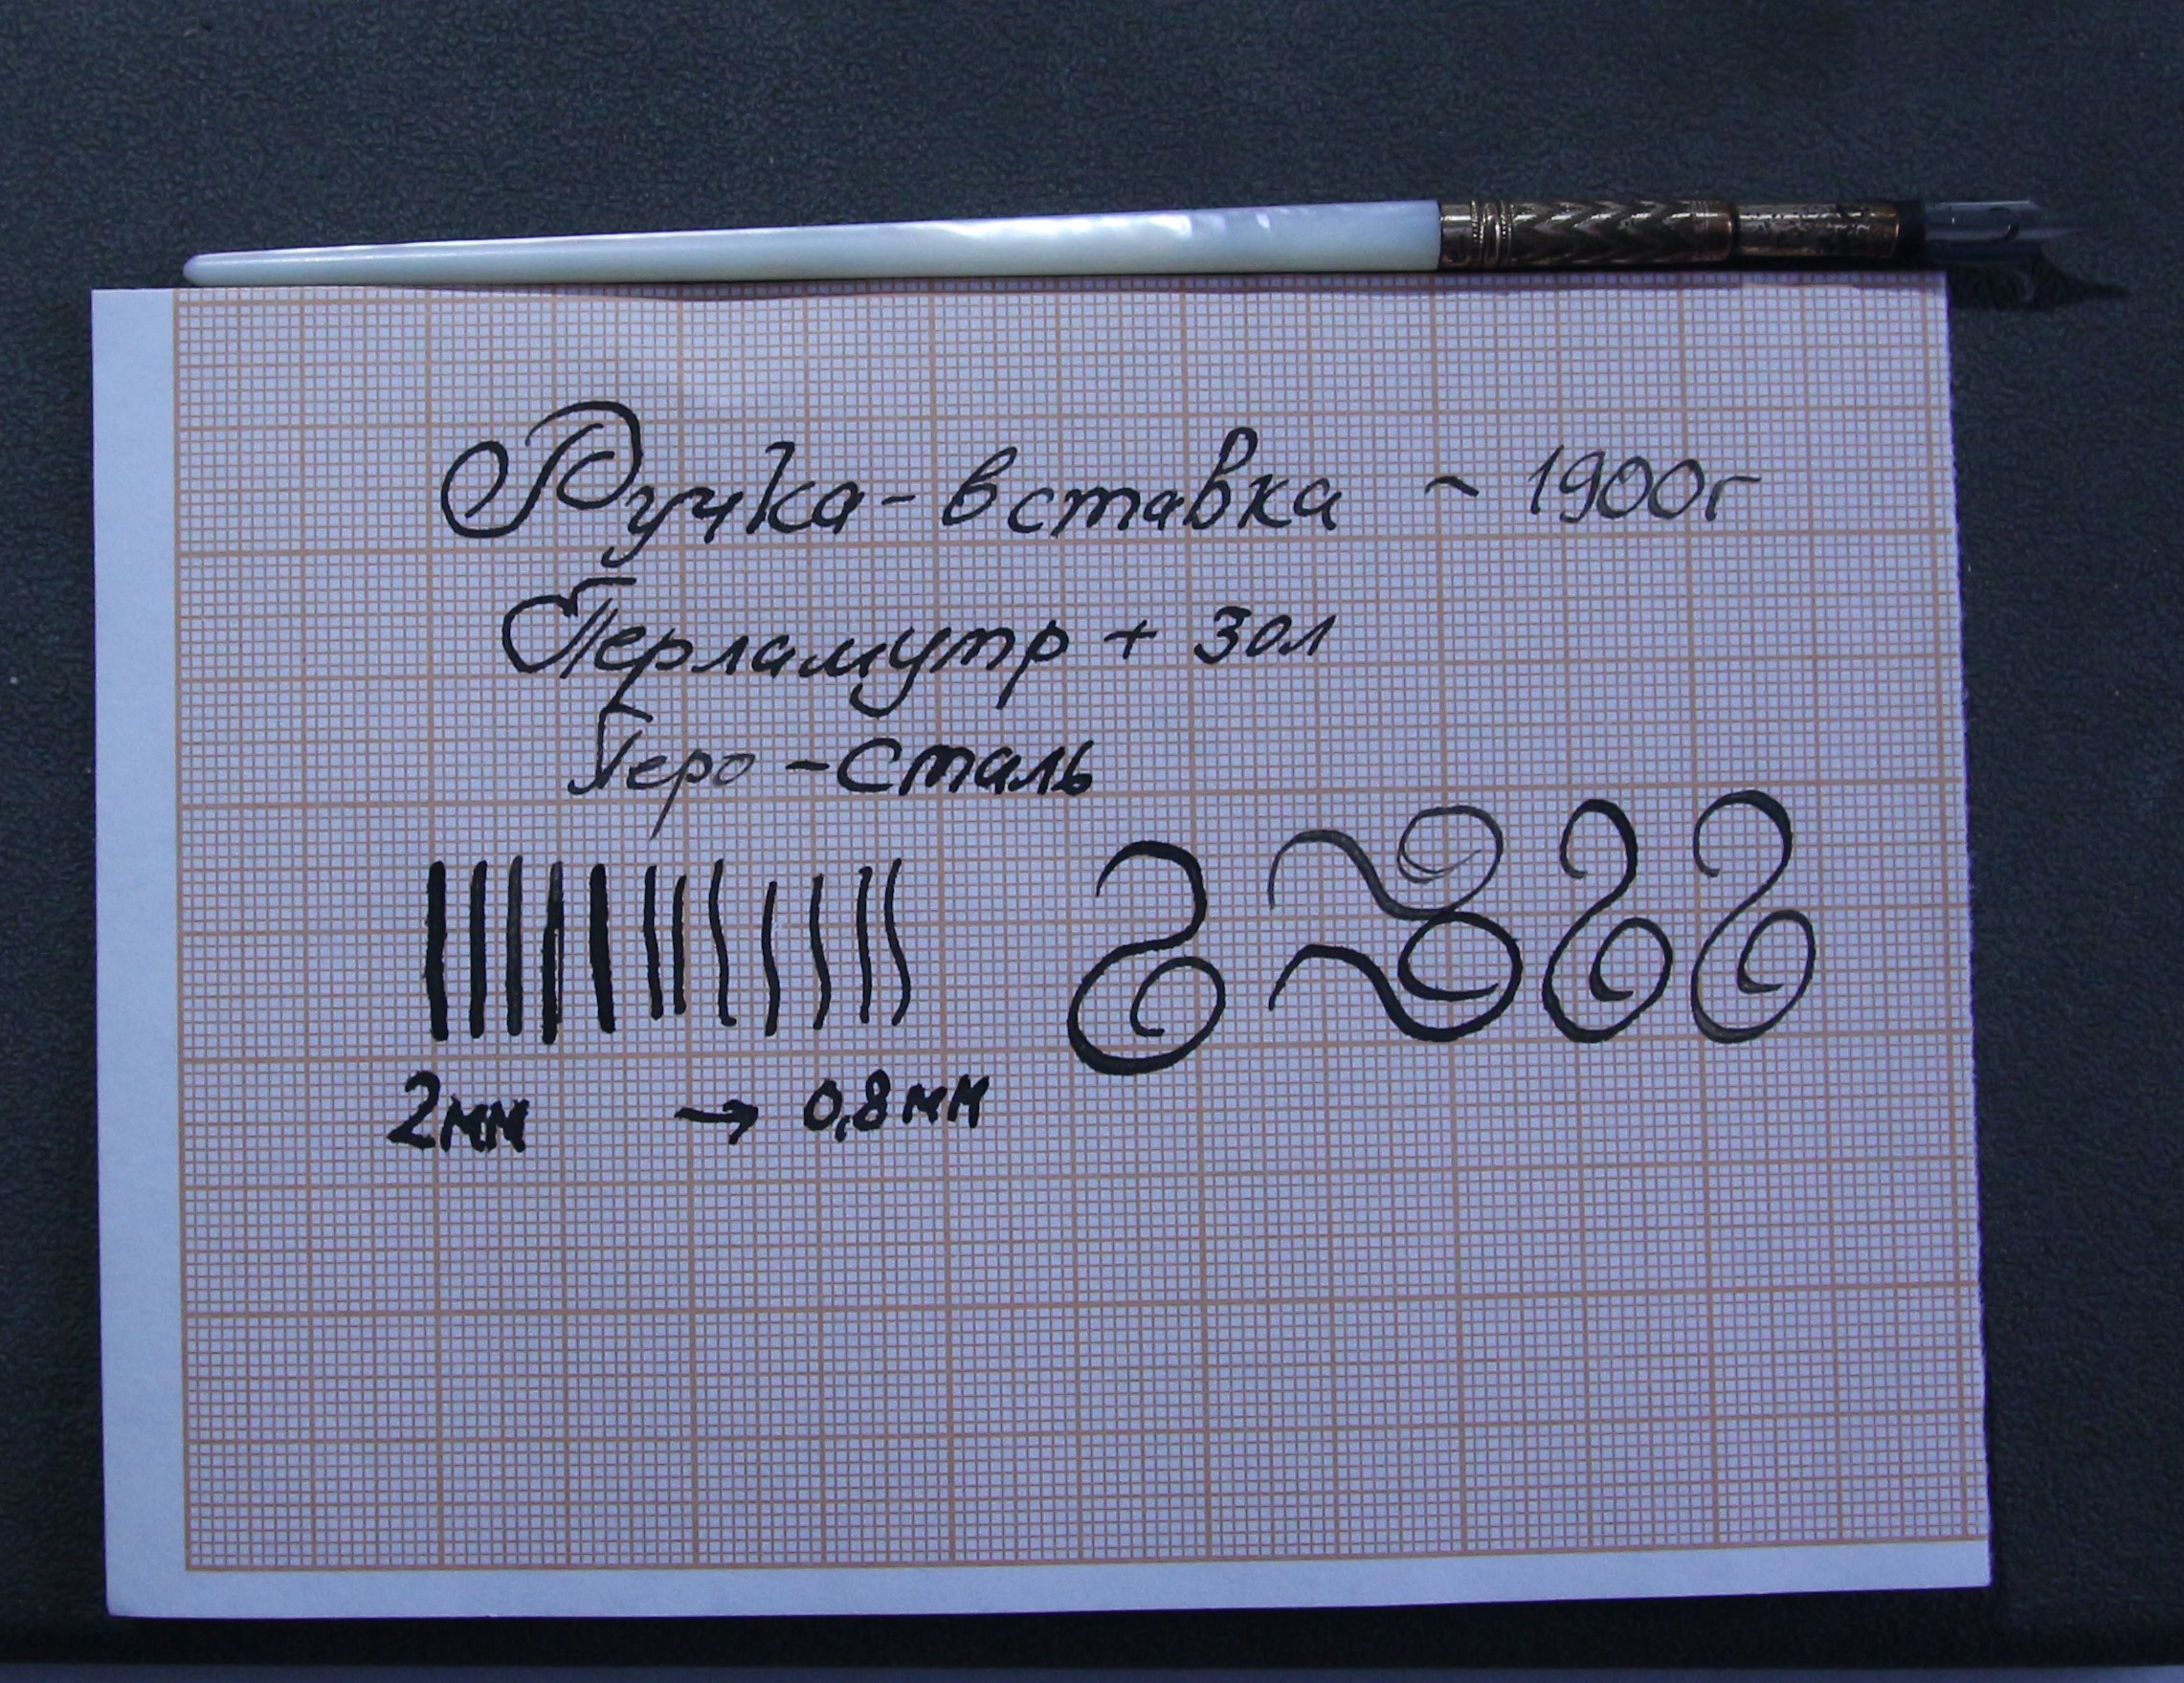 Ручка-вставка ~ 1900г
Перламутр + Зол
Перо - Сталь
2мм → 0,8мм